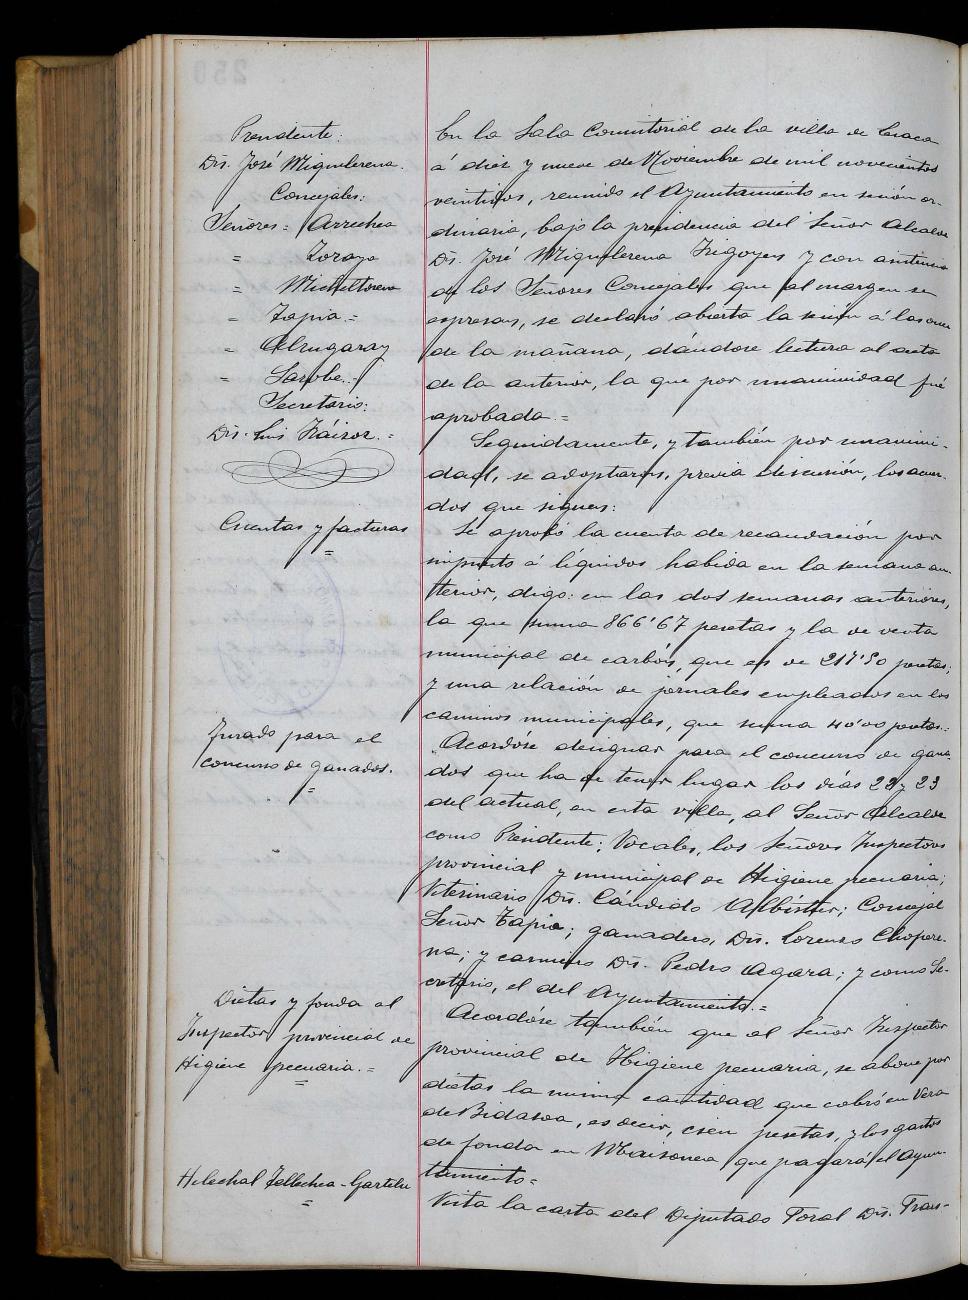 Presidente:
Dn. José Miquelerena.
Concejales:
Señores = Arrechea
= Loraya
= Micheltorena
= Tapia =
= Alzugaray
= Sarobe.
Secretario:
Dn. Luis =
Cuentas y facturas
=
Jurado para el
concurso de ganados.
=
Dietas y fonda al
Inspector provincial de
Higiene pecuaria. =
=
Helechal Tellechea-Gartelu
=
En la Sala Consistorial de la villa de
á diez y nueve de Noviembre de mil novecientos
veintidos, reunido el Ayuntamiento en sesión or-
dinaria, bajo la presidencia del Señor Alcalde
Dn. José Miquelerena Irigoyen y con asistencia
de los Señores Concejales que al margen se
expresan, se declaró abierta la sesión á las once
de la mañana, dándose lectura al acta
de la anterior, la que por unanimidad fué
aprobada. =
Seguidamente, y también por unanimi-
dad, se adoptaron, previa discusión, los acuer-
dos que siguen:
Se aprobó la cuenta de recaudación por
impuesto á líquidos habida en la semana an-
terior, digo: en las dos semanas anteriores,
la que suma 866'67 pesetas y la de venta
municipal de carbón, que es de 217'50 pesetas;
y una relación de jornales empleados en los
caminos municipales, que suma 40'00 pesetas.=
Acordóse designar para el concurso de gana-
dos que ha de tener lugar los días 22 y 23
del actual, en esta villa, al Señor Alcalde
como Presidente; Vocales, los Señores Inspectores
provincial y municipal de Higiene pecuaria;
Veterinario Dn. Cándido Albístur; Concejal
Señor Tapia; ganadero, Dn. Lorenzo Chopere-
na; y carnicero Dn. Pedro Agara; y como Se-
cretario, el del Ayuntamiento. =
Acordóse también que al Señor Inspector
provincial de Higiene pecuaria, se abone por
dietas la misma cantidad que cobró en Vera
de Bidasoa, es decir, cien pesetas, y los gastos
de fonda en Maisonea que pagará el Ayun-
tamiento =
Vista la carta del Diputado Foral Dn. Fran-